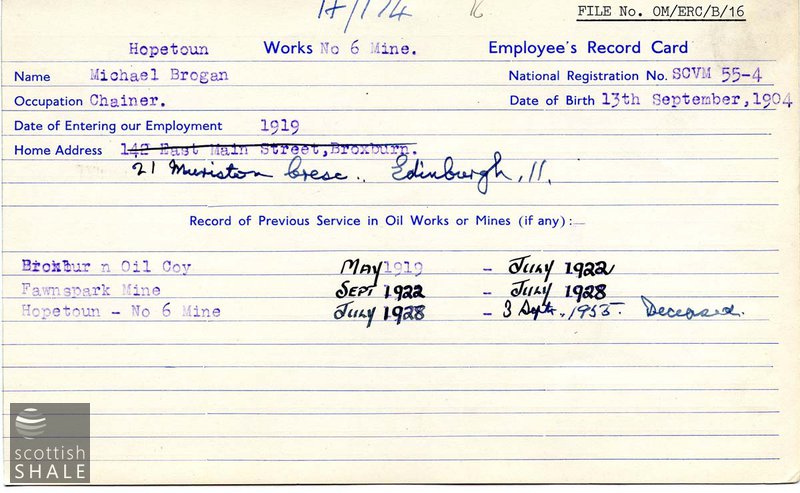 17/174 16 FILE No. OM/ERC/B/16
Hopetoun Works No 6 Mine. Employee's Record Card
Name Michael Brogan National Registration No. SCVM 55-4
Occupation Chainer. Date of Birth 13th September, 1904
Date of Entering our Employment 1919
Home Address 142 East Main Street, Broxburn.
21 Muriston Cresc.. Edinburgh, 11.
Record of Previous Service in Oil Works or Mines (if any):—
Broxbur n Oil Coy MAY 1919 - JULY 1922
Fawnspark Mine SEPT 1922 - JULY 1928
Hopetoun - No 6 Mine JULY 1928 - 3 Sept. 1955. Deceased.
scottish
SHALE